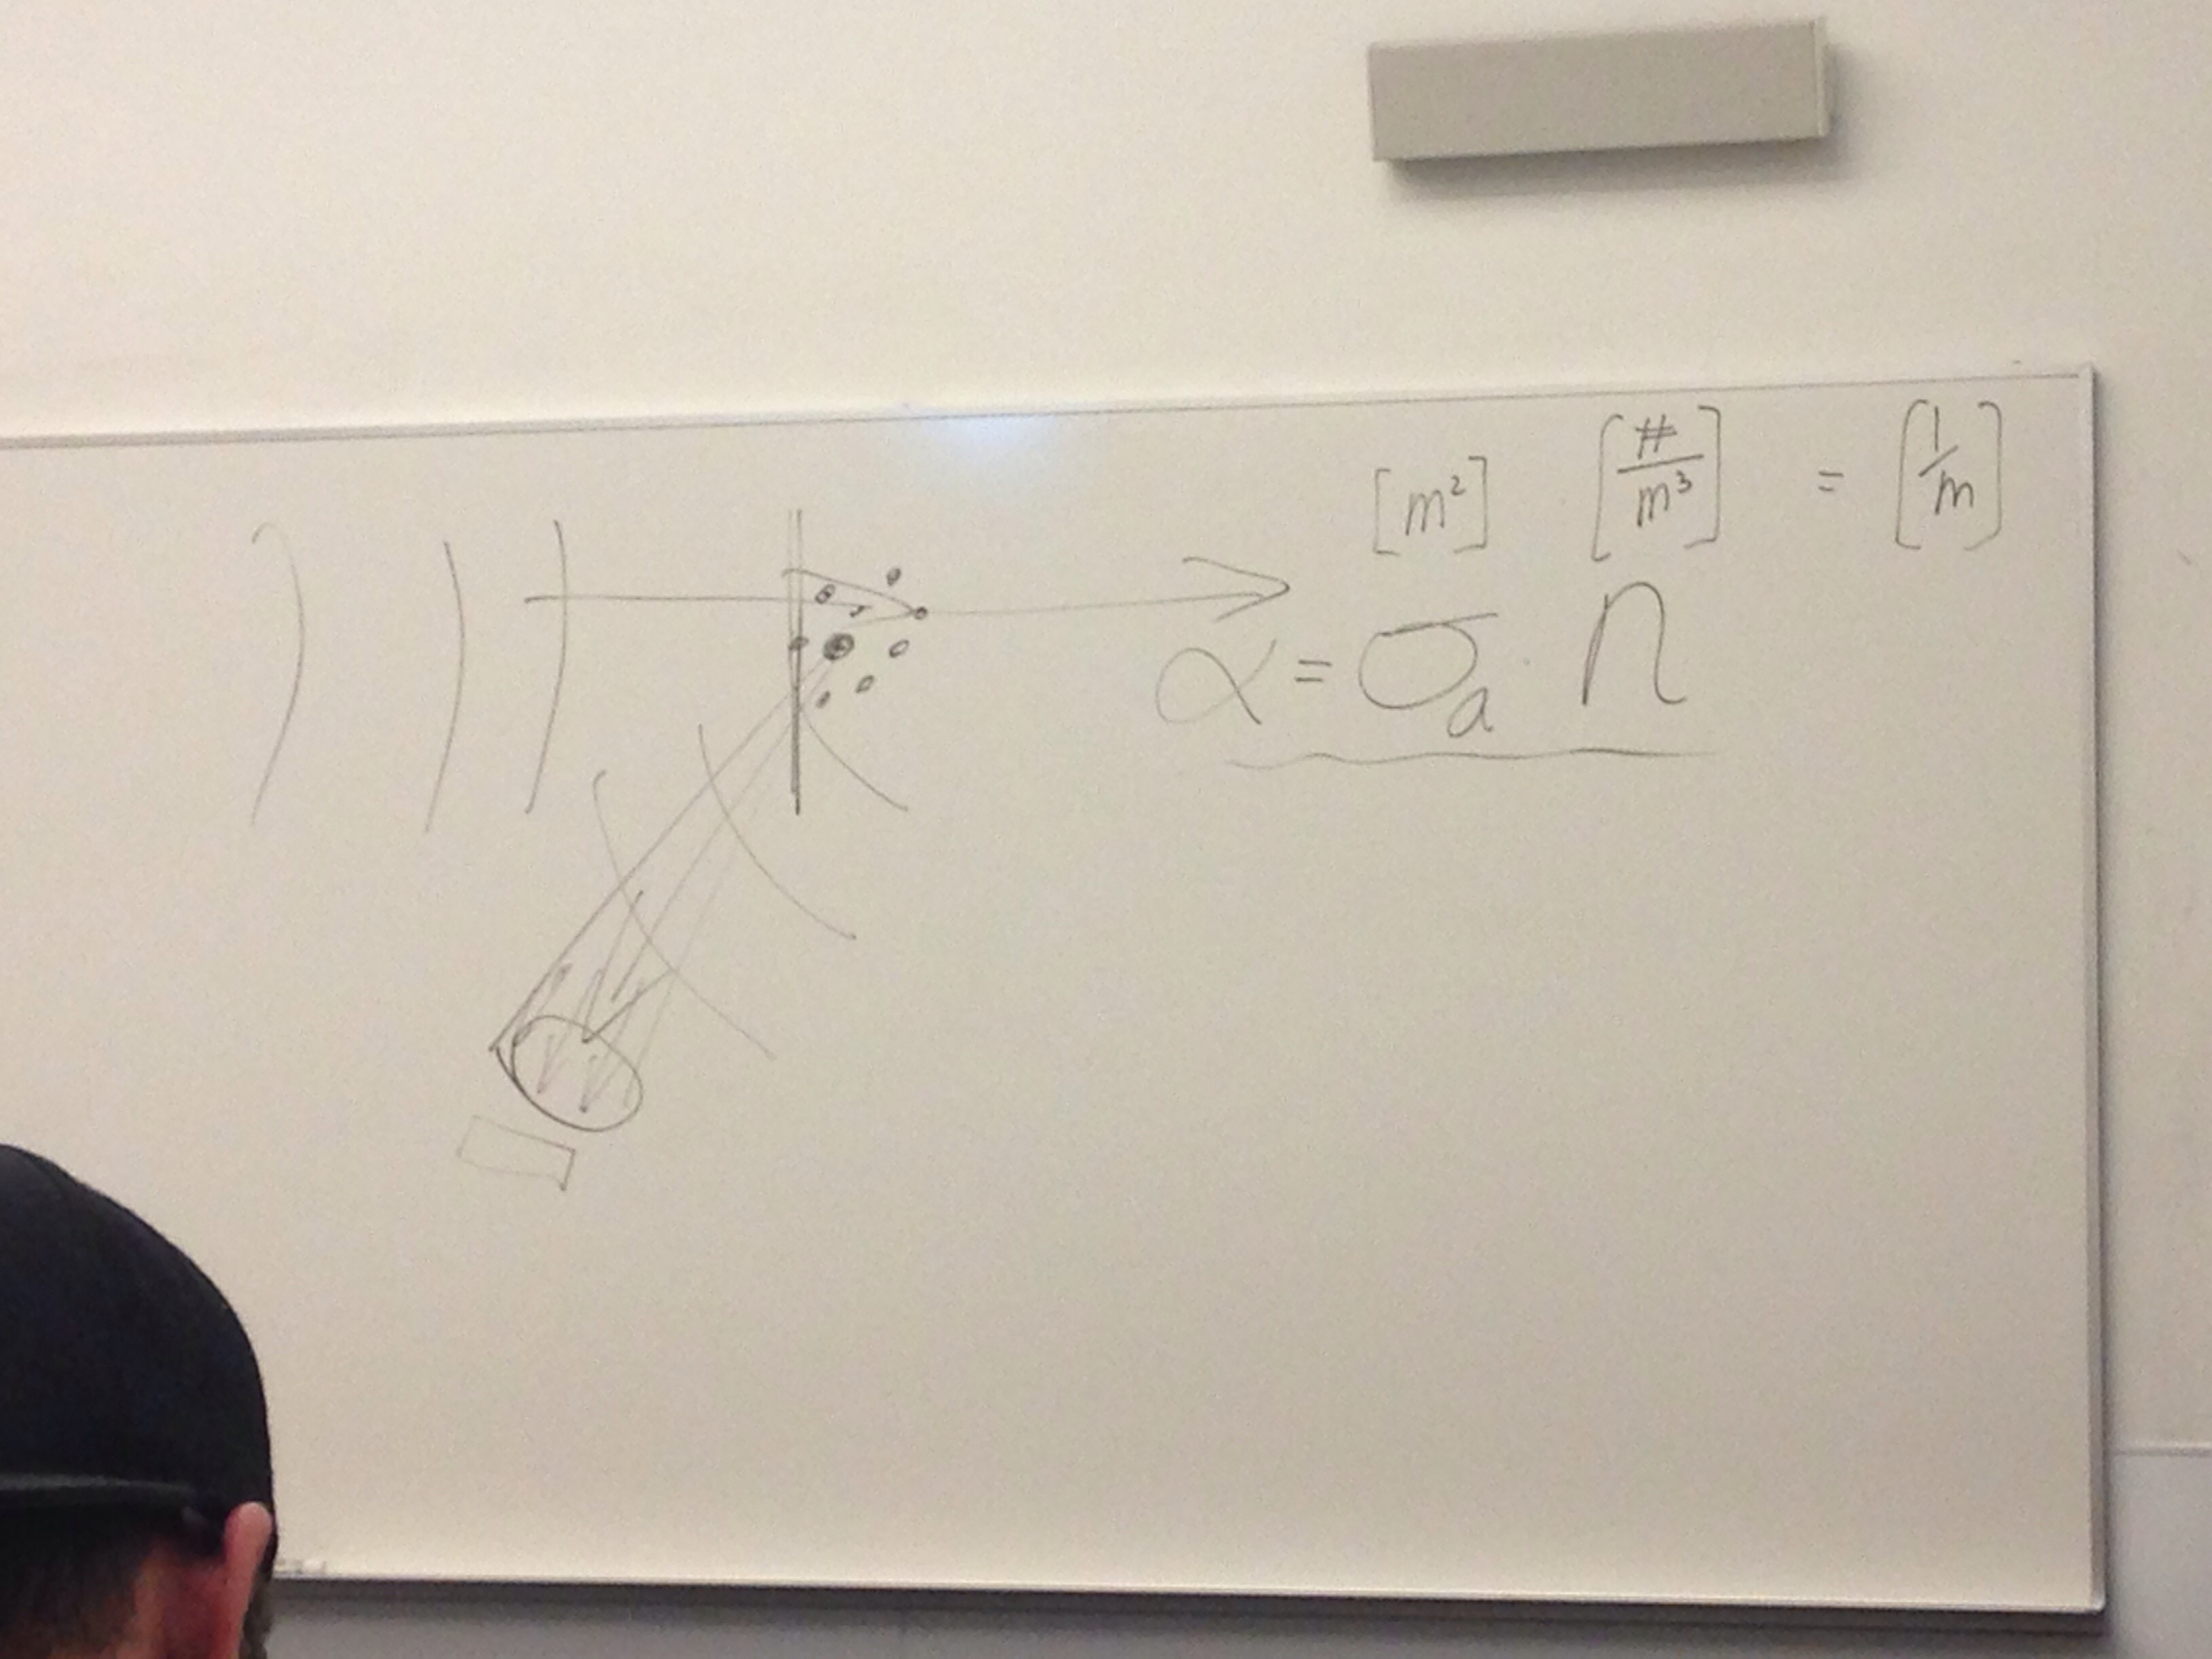 [m²] [#/m³] = [1/m]
α = σₐ · n